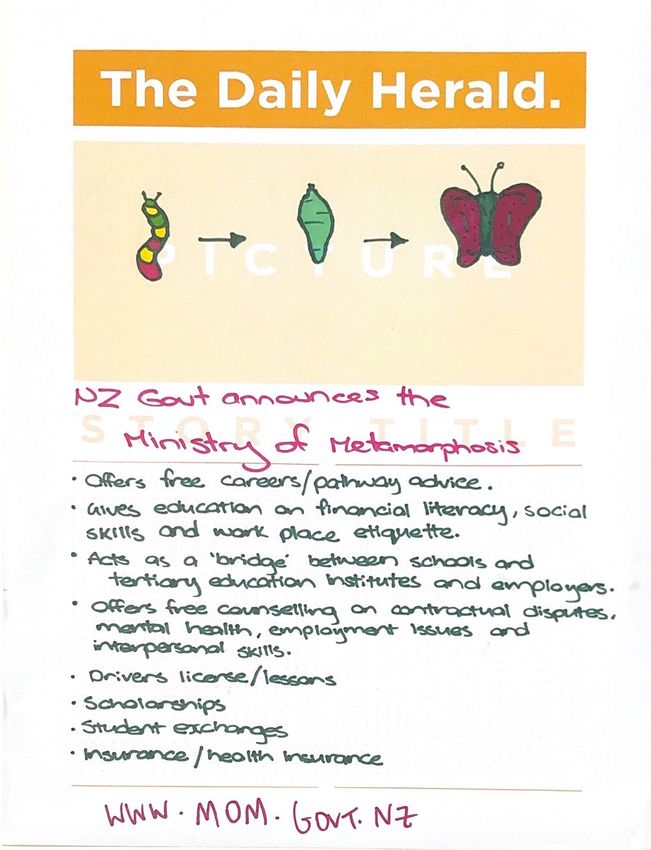 The Daily Herald.
PICTURE
NZ Govt announces the
STORY TITLE
Ministry of Metamorphosis
• Offers free careers/pathway advice.
• Gives education on financial literacy, social
skills and work place etiquette.
• Acts as a 'bridge' between schools and
tertiary education institutes and employers.
• Offers free counselling on contractual disputes,
mental health, employment issues and
interpersonal skills.
• Drivers license/lessons
• Scholarships
• Student exchanges
• Insurance/health insurance
WWW.MOM.GOVT.NZ